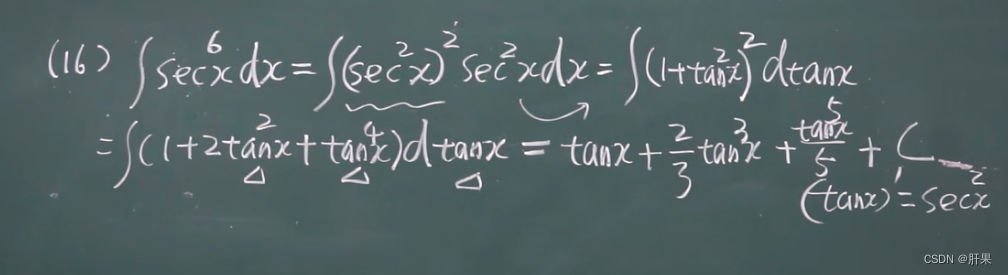 (16) ∫sec⁶x dx = ∫(sec²x)² sec²x dx = ∫(1+tan²x)² dtanx
= ∫(1+2tan²x+tan⁴x)dtanx = tanx + 2/3 tan³x + tan⁵x/5 + C
(tanx)' = sec²x
CSDN @肝果